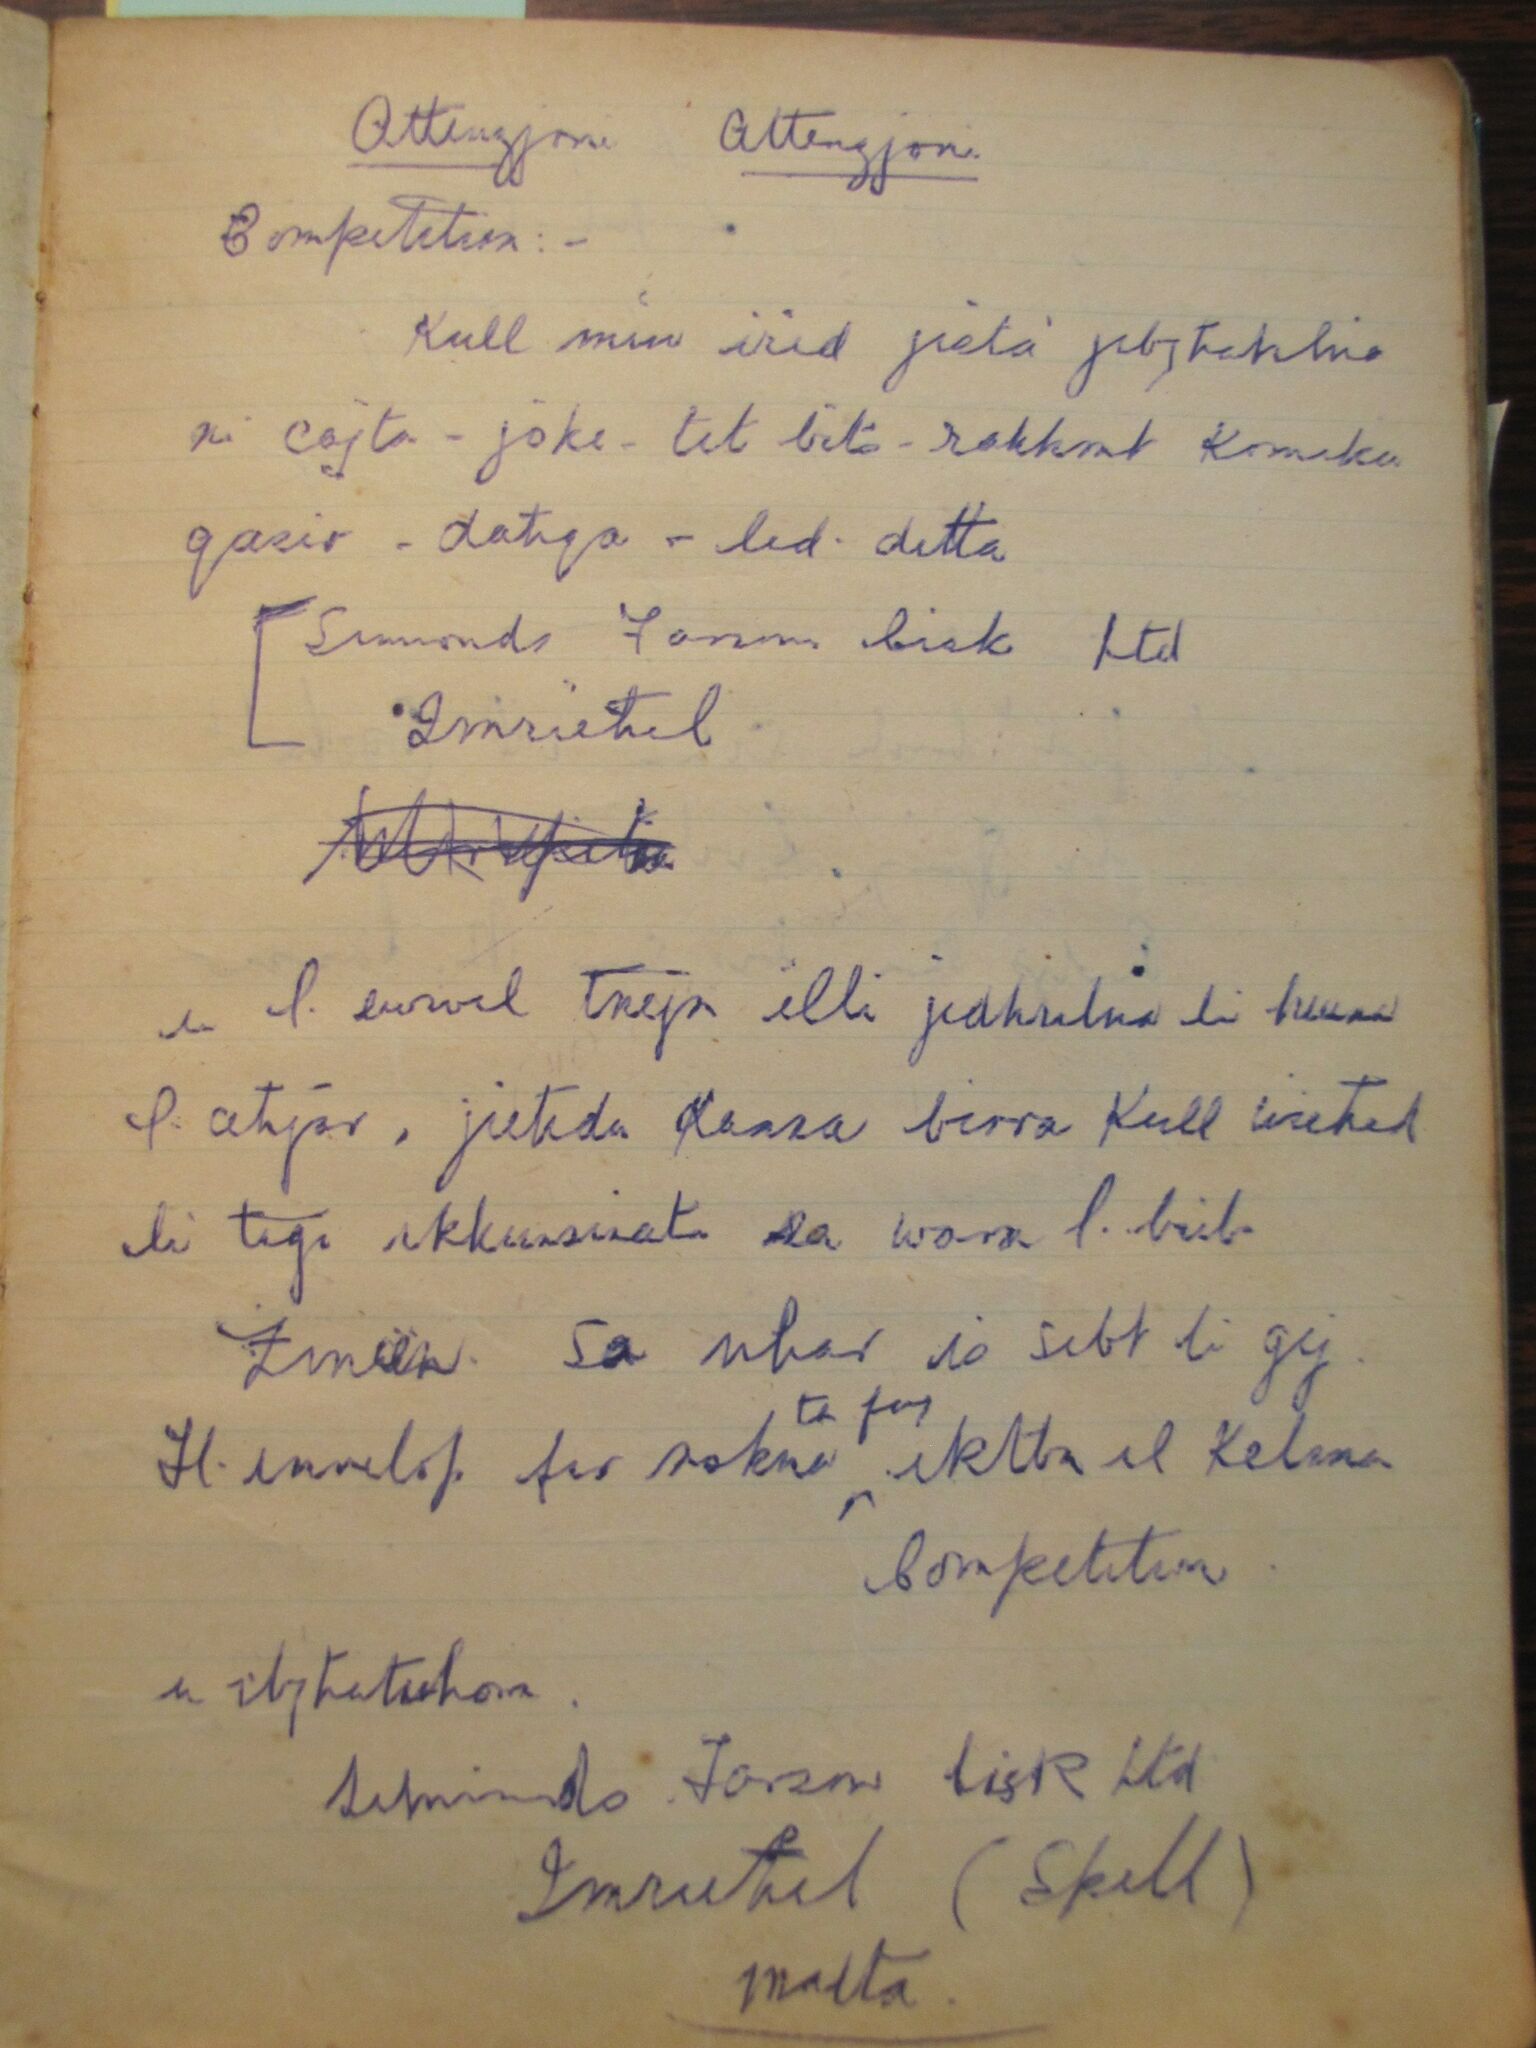 Attenzjoni Attenzjoni
Competition:-
Kull min irid jista jibgħatilna
xi cajta - joke - tet bits - rakkont komiku
qasir - daħqa - led. detta
Simonds Farsons Cisk Ltd
Imrieħel
u l. ewwel tnejn illi jidhrilna li huma
l. aħjar, jieħdu kaxxa birra kull wieħed
li tiġi ikkunsinata sa wara l. bieb
Żmien. Sa nhar is sibt li ġej.
Il. envelop fuq rokna ta fuq iktbu il kelma
Competition.
u ibgħatuhom.
Simonds Farsons Cisk Ltd
Imrieħel (Spell)
Malta.